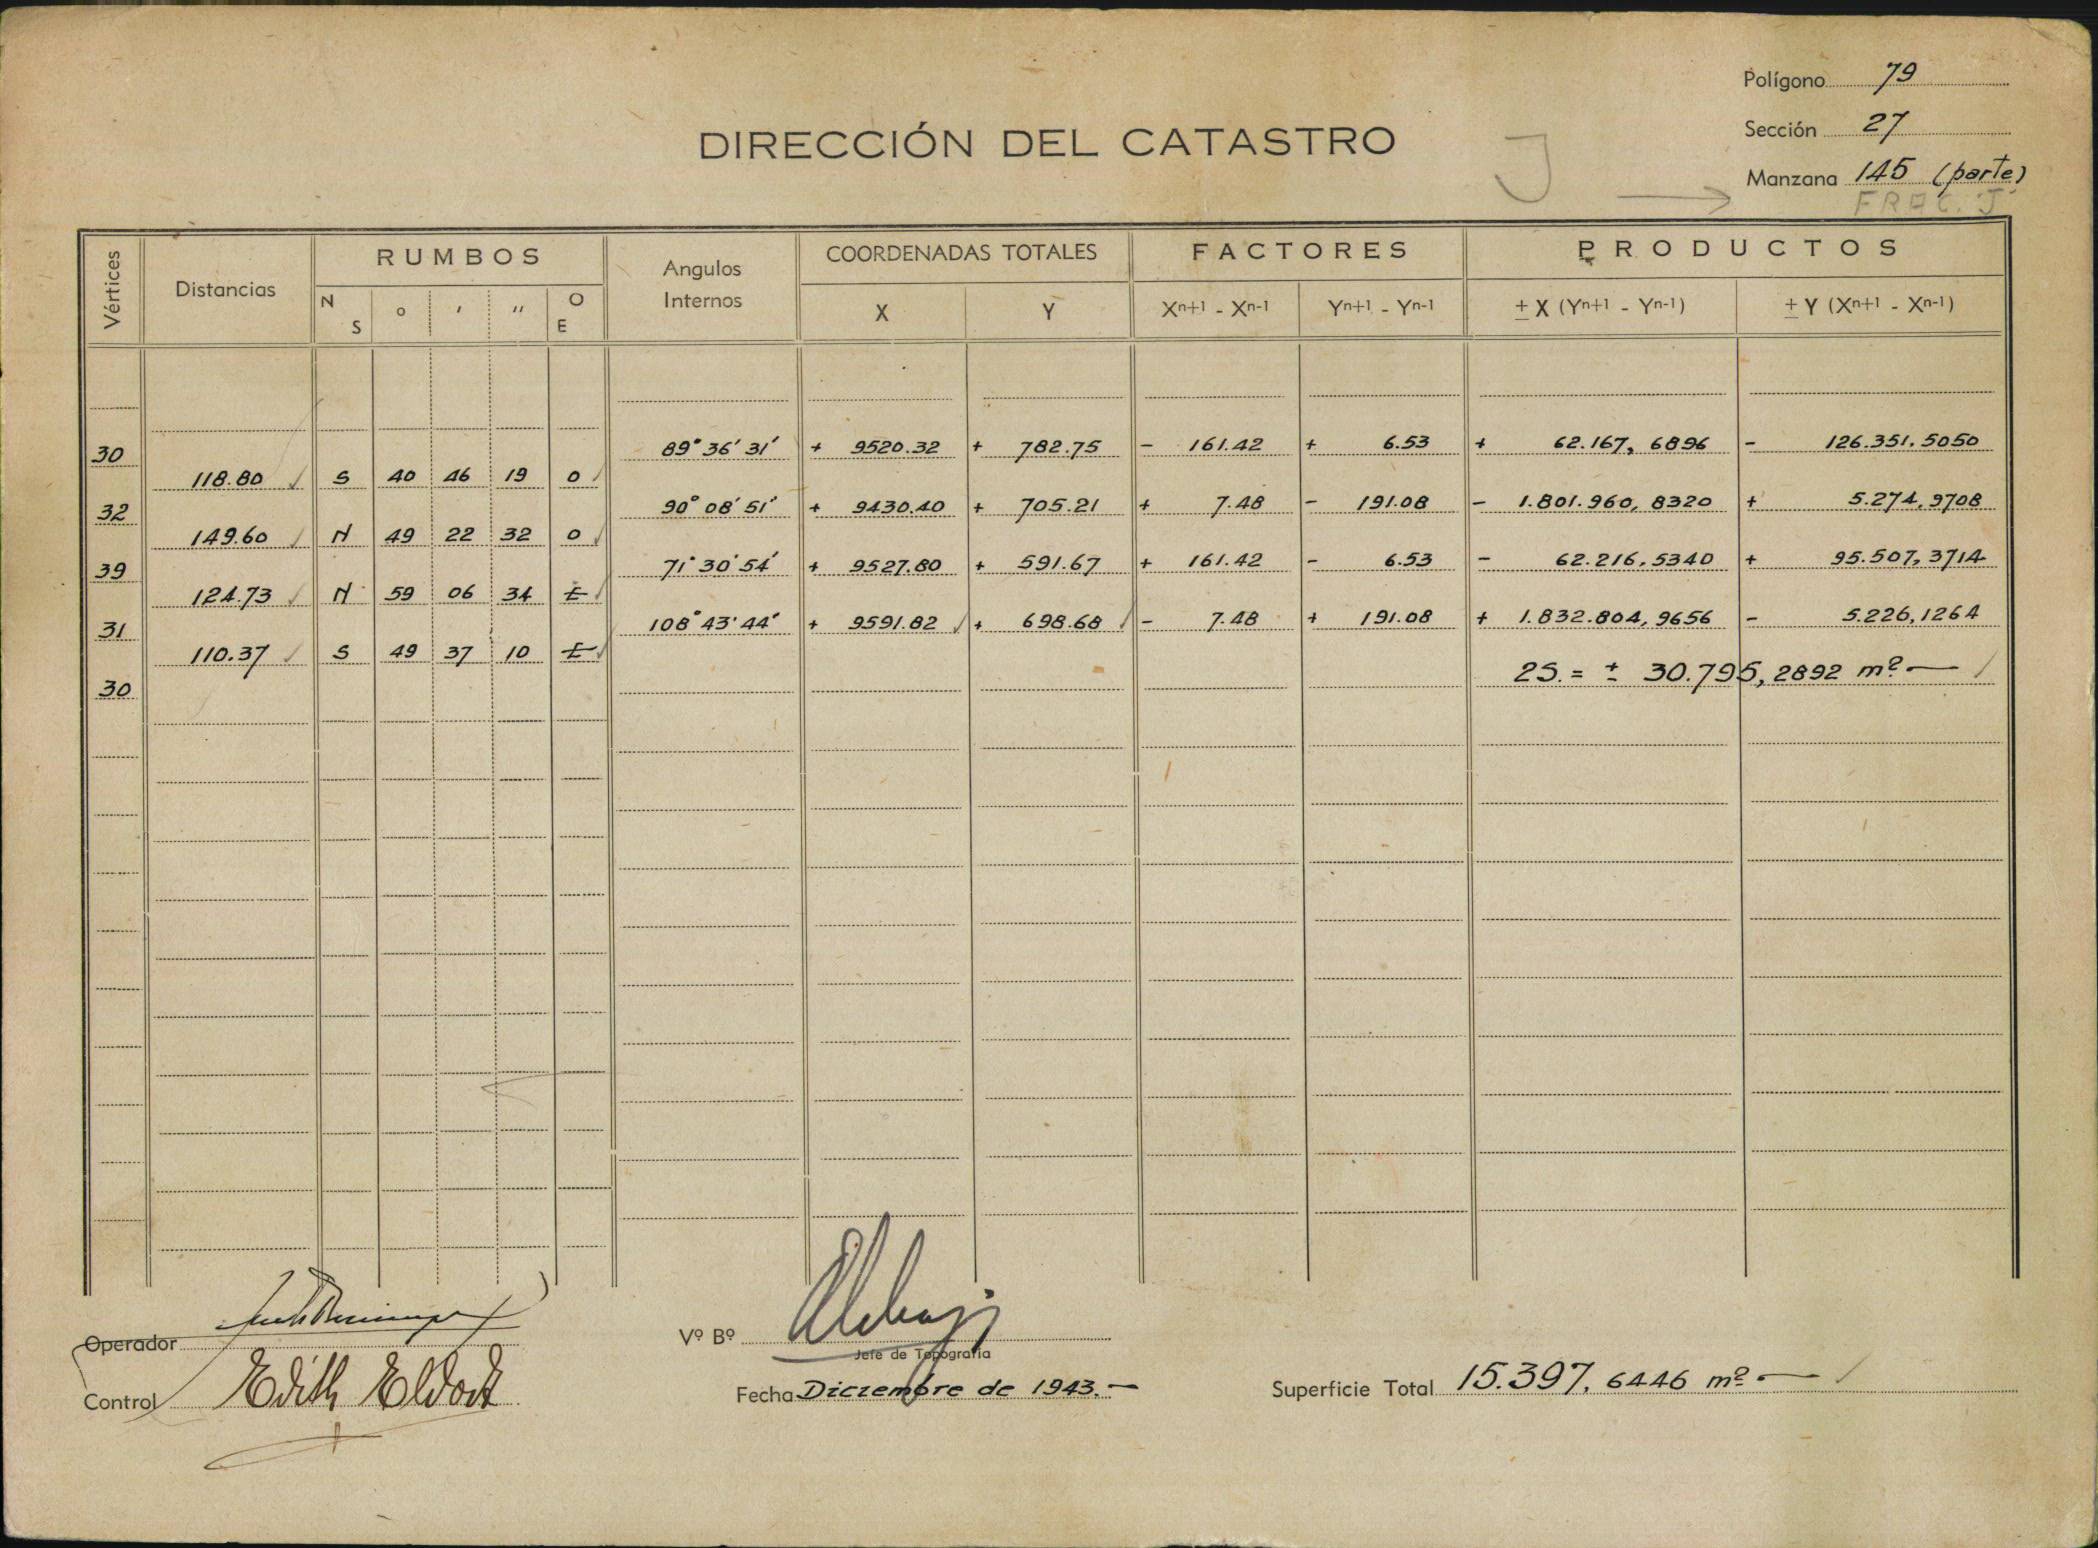 Polígono 79
DIRECCIÓN DEL CATASTRO
J
Sección 27
Manzana 145 (parte)
FRAC. "J"
Vértices Distancias RUMBOS Angulos Internos COORDENADAS TOTALES FACTORES PRODUCTOS
N S ° ' " O E X Y Xn+1 - Xn-1 Yn+1 - Yn-1 ± X (Yn+1 - Yn-1) ± Y (Xn+1 - Xn-1)
30 89° 36' 31' + 9520.32 + 782.75 - 161.42 + 6.53 + 62.167, 6896 - 126.351.5050
118.80 S 40 46 19 O
32 90° 08' 51' + 9430.40 + 705.21 + 7.48 - 191.08 - 1.801.960, 8320 + 5.274,9708
149.60 N 49 22 32 O
39 71° 30' 54' + 9527.80 + 591.67 + 161.42 - 6.53 - 62.216,5340 + 95.507,3714
124.73 N 59 06 34 E
31 108° 43' 44' + 9591.82 + 698.68 - 7.48 + 191.08 + 1.832.804,9656 - 5.226,1264
110.37 S 49 37 10 E
30 2S. = ± 30.795,2892 m2
Operador
Vº Bº
Jefe de Topografía
Control Edith
Fecha Diczembre de 1943.-
Superficie Total 15.397,6446 m2